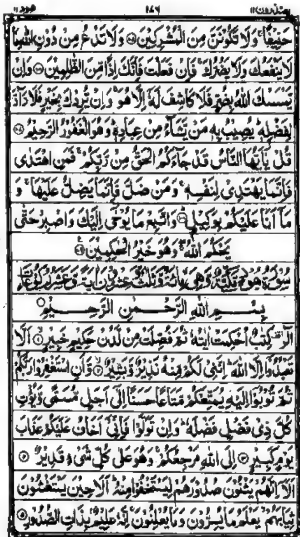 يعتذرون ١١ ١٧٦ هود ١١
حَنِيْفًا ۚ وَلَا تَكُوْنَنَّ مِنَ الْمُشْرِكِيْنَ ۝ وَلَا تَدْعُ مِنْ دُوْنِ اللّٰهِ مَا
لَا يَنْفَعُكَ وَلَا يَضُرُّكَ ۚ فَاِنْ فَعَلْتَ فَاِنَّكَ اِذًا مِّنَ الظّٰلِمِيْنَ ۝ وَاِنْ
يَّمْسَسْكَ اللّٰهُ بِضُرٍّ فَلَا كَاشِفَ لَهٗٓ اِلَّا هُوَ ۚ وَاِنْ يُّرِدْكَ بِخَيْرٍ فَلَا رَآدَّ
لِفَضْلِهٖ ؕ يُصِيْبُ بِهٖ مَنْ يَّشَآءُ مِنْ عِبَادِهٖ ؕ وَهُوَ الْغَفُوْرُ الرَّحِيْمُ ۝
قُلْ يٰٓاَيُّهَا النَّاسُ قَدْ جَآءَكُمُ الْحَقُّ مِنْ رَّبِّكُمْ ۚ فَمَنِ اهْتَدٰى
فَاِنَّمَا يَهْتَدِيْ لِنَفْسِهٖ ۚ وَمَنْ ضَلَّ فَاِنَّمَا يَضِلُّ عَلَيْهَا ۚ وَ
مَآ اَنَا عَلَيْكُمْ بِوَكِيْلٍ ۝ وَاتَّبِعْ مَا يُوْحٰٓى اِلَيْكَ وَاصْبِرْ حَتّٰى
يَحْكُمَ اللّٰهُ ۚ وَهُوَ خَيْرُ الْحٰكِمِيْنَ ۝
سُوْرَةُ هُوْدٍ مَّكِّيَّةٌ وَّهِيَ مِائَةٌ وَّثَلٰثٌ وَّعِشْرُوْنَ اٰيَةً وَّعَشْرُ رُكُوْعَاتٍ
بِسْمِ اللّٰهِ الرَّحْمٰنِ الرَّحِيْمِ
الٓرٰ ۚ كِتٰبٌ اُحْكِمَتْ اٰيٰتُهٗ ثُمَّ فُصِّلَتْ مِنْ لَّدُنْ حَكِيْمٍ خَبِيْرٍ ۝ اَلَّا
تَعْبُدُوْٓا اِلَّا اللّٰهَ ؕ اِنَّنِيْ لَكُمْ مِّنْهُ نَذِيْرٌ وَّبَشِيْرٌ ۝ وَّاَنِ اسْتَغْفِرُوْا رَبَّكُمْ
ثُمَّ تُوْبُوْٓا اِلَيْهِ يُمَتِّعْكُمْ مَّتَاعًا حَسَنًا اِلٰٓى اَجَلٍ مُّسَمًّى وَّيُؤْتِ
كُلَّ ذِيْ فَضْلٍ فَضْلَهٗ ؕ وَاِنْ تَوَلَّوْا فَاِنِّيْٓ اَخَافُ عَلَيْكُمْ عَذَابَ
يَوْمٍ كَبِيْرٍ ۝ اِلَى اللّٰهِ مَرْجِعُكُمْ ۚ وَهُوَ عَلٰى كُلِّ شَيْءٍ قَدِيْرٌ ۝
اَلَآ اِنَّهُمْ يَثْنُوْنَ صُدُوْرَهُمْ لِيَسْتَخْفُوْا مِنْهُ ؕ اَلَا حِيْنَ يَسْتَغْشُوْنَ
ثِيَابَهُمْ ۙ يَعْلَمُ مَا يُسِرُّوْنَ وَمَا يُعْلِنُوْنَ ۚ اِنَّهٗ عَلِيْمٌۢ بِذَاتِ الصُّدُوْرِ ۝